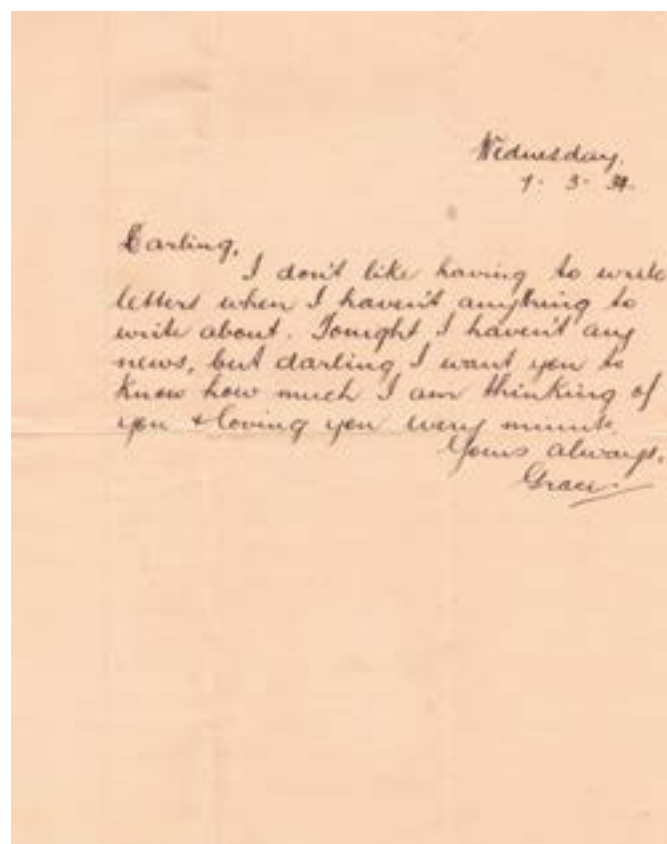 Wednesday.
7- 3- 34.
Darling,
I don't like having to write
letters when I haven't anything to
write about. Tonight I haven't any
news, but darling, I want you to
know how much I am thinking of
you & loving you every minute.
Yours always,
Grace.